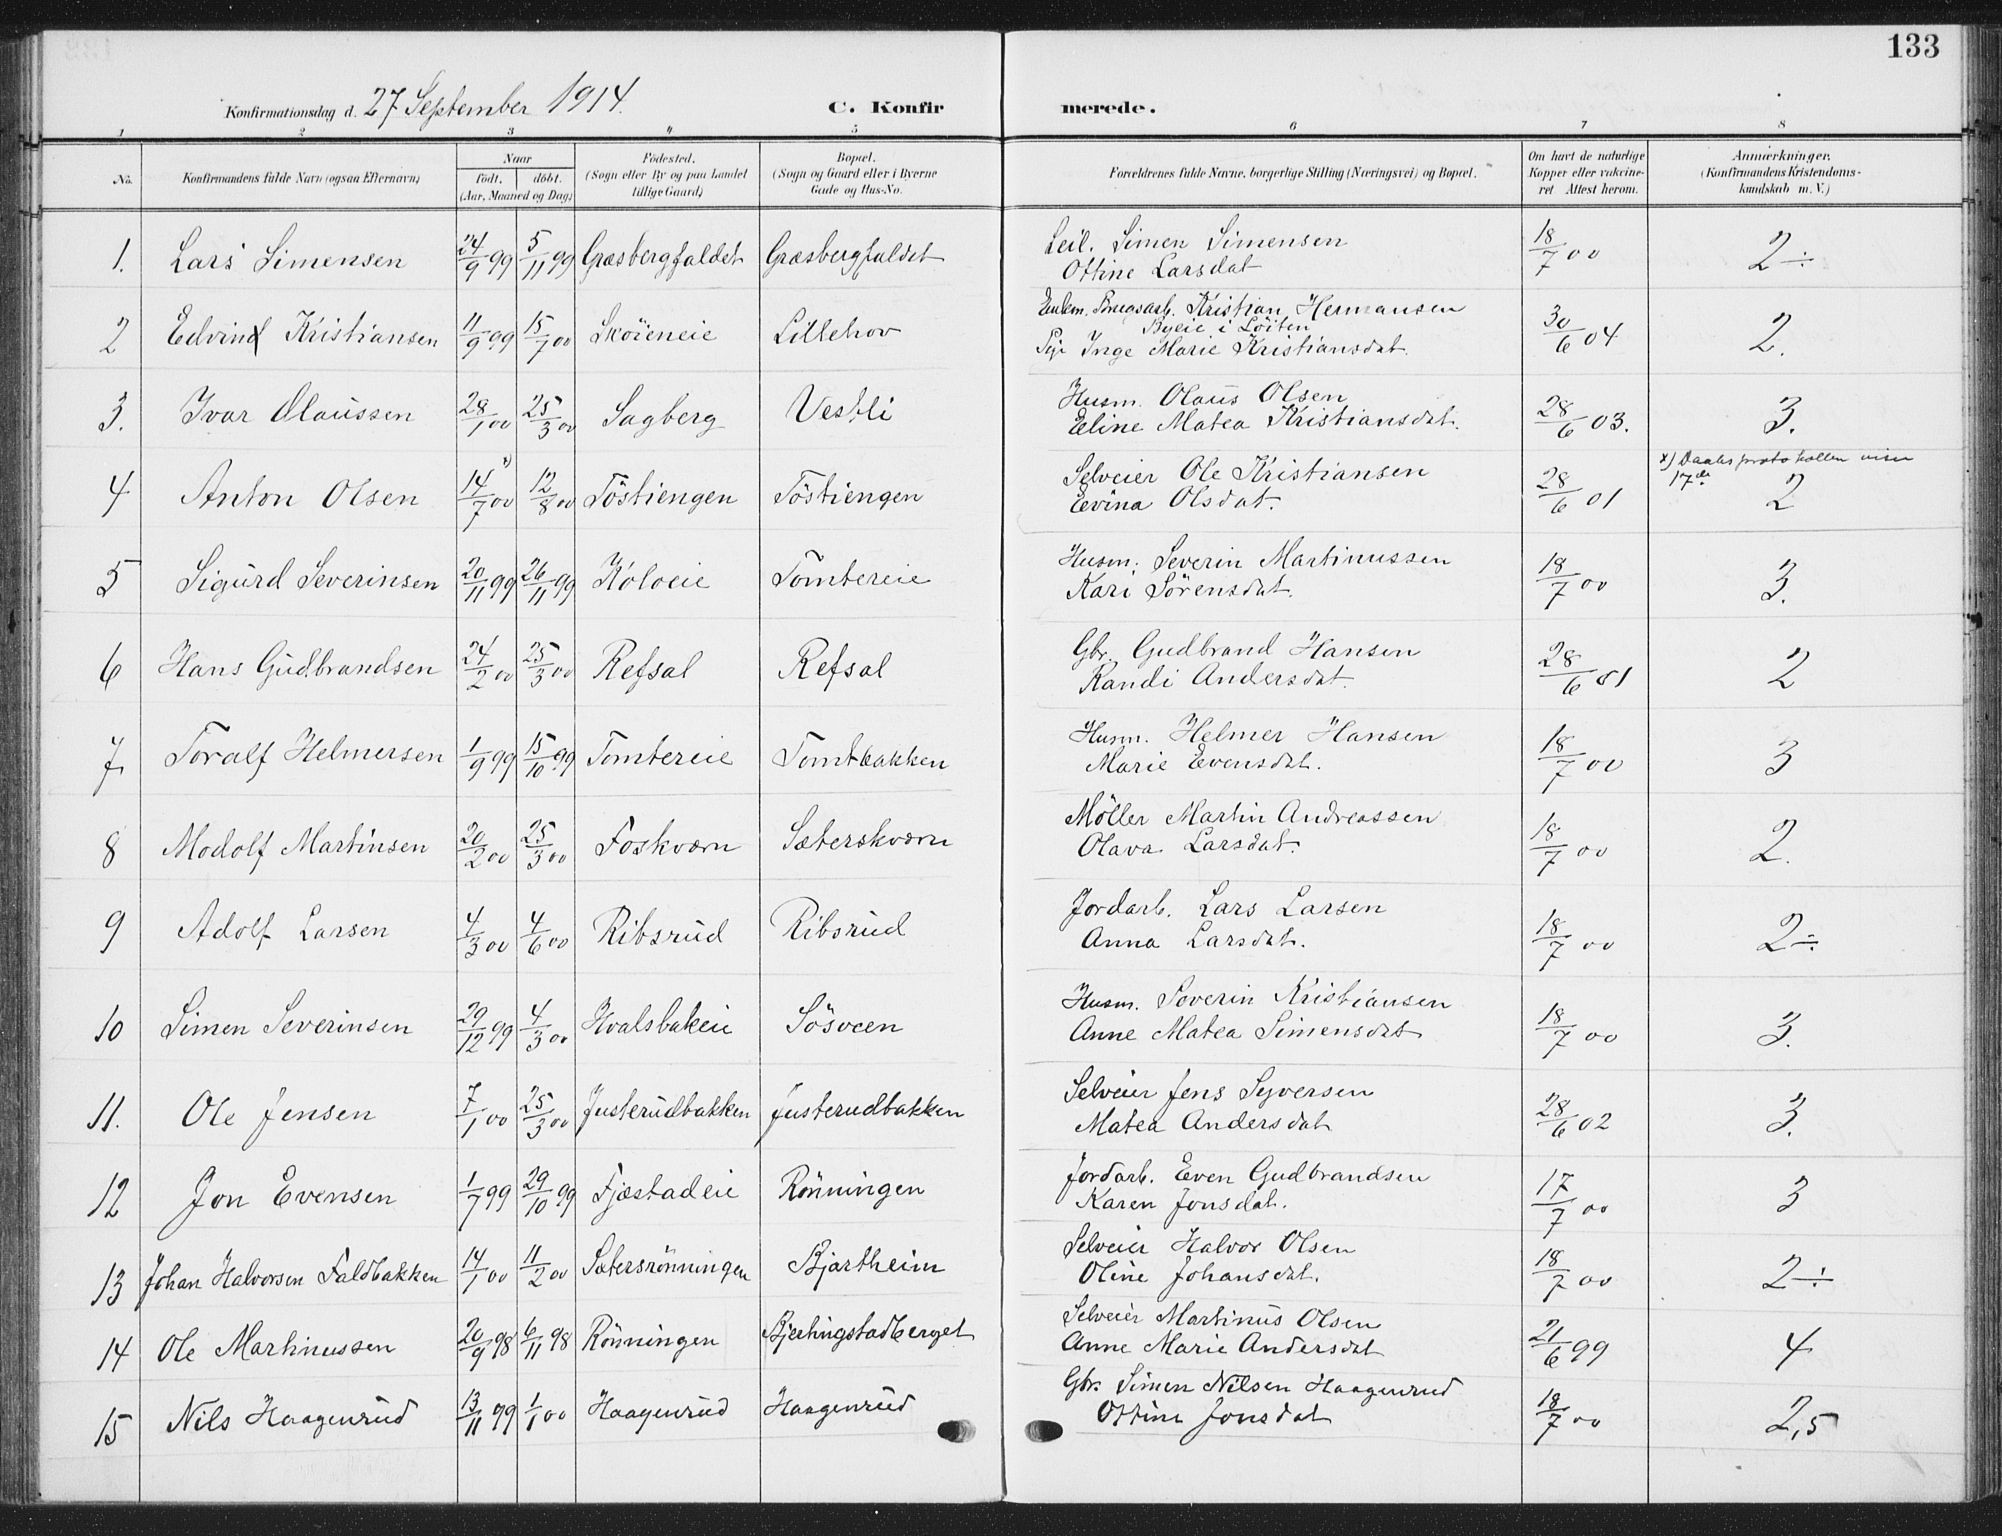 133
Konfirmationsdag d. 27 September 1914. C. Konfirmerede.
1 2 3 4 5 6 7 8
No. Konfirmandens fulde Navn (ogsaa Efternavn) Naar født, døbt. (Aar, Maaned og Dag) Fødested. (Sogn eller By og paa Landet tillige Gaard) Bopæl. (Sogn og Gaard eller i Byerne Gade og Hus-No. Forældrenes fulde Navne, borgerlige Stilling (Næringsvei) og Bopæl. Om havt de naturlige Kopper eller vakcineret Attest herom. Anmærkninger. (Konfirmandens Kristendomskundskab m. V.)
1. Lars Simensen 24/9 99 5/11 99 Græsbergfaldet Græsbergfaldet Leil. Simen Simensen 18/7 00 2 ÷
Ottine Larsdat
2 Edvind Kristiansen 11/9 99 15/7 00 Skøieneie Lillehov Enkm. Brugsarb. Kristian Hermansen 30/6 04 2.
Byeie i Løiten
Pige Inge Marie Kristiansdat.
3. Ivar Olaussen 28/1 00 25/3 00 Sagberg Vestli Husm. Olaus Olsen 28/6 03. 3.
Eline Matea Kristiansdat.
4 Anton Olsen 14/7 x) 00 12/8 00 Töstiengen Töstiengen Selveier Ole Kristiansen 28/6 01 x) Daabsprotokollen viser 17de 2
Evina Olsdat.
5 Sigurd Severinsen 20/11 99 26/11 99 Koloeie Tomtereie Husm. Severin Martinussen 18/7 00 3.
Kari Sörensdat.
6 Hans Gudbrandsen 24/2 00 25/3 00 Refsal Refsal Gbr. Gudbrand Hansen 28/6 01 2
Randi Andersdat.
7 Toralf Helmersen 1/9 99 15/10 99 Tomtereie Tomtbakken Husm. Helmer Hansen 18/7 00 3
Marie Evensdat.
8 Modolf Martinsen 20/2 00 25/3 00 Foskværn Sæterskværn Möller Martin Andreassen 18/7 00 2.
Olava Larsdat.
9 Adolf Larsen 4/3 00 4/6 00 Ribsrud Ribsrud Jordarb. Lars Larsen 18/7 00 2 ÷
Anna Larsdat.
10 Simen Severinsen 29/12 99 4/3 00 Hvalsbakeie Sösveen Husm. Severin Kristiansen 18/7 00 3.
Anne Matea Simensdat
11. Ole Jensen 7/1 00 25/3 00 Justerudbakken Justerudbakken Selveier Jens Syversen 28/6 02 3.
Matea Andersdat
12 Jon Evensen 1/7 99 29/10 99 Fjæstadeie Rönningen Jordarb. Even Gudbrandsen 17/7 00 3
Karen Jonsdat.
13 Johan Halvorsen Faldbakken 14/1 00 11/2 00 Sætersrönningen Bjartheim Selveier Halvor Olsen 18/7 00 2 ÷
Oline Johansdat.
14 Ole Martinussen 20/9 98 6/11 98 Rönningen Bjerkingstadberget Selveier Martinus Olsen 21/6 99 4
Anne Marie Andersdat
15 Nils Haagenrud 13/11 99 1/1 00 Haagenrud Haagenrud Gbr. Simen Nilsen Haagenrud 18/7 00 2,5
Ottine Jonsdat